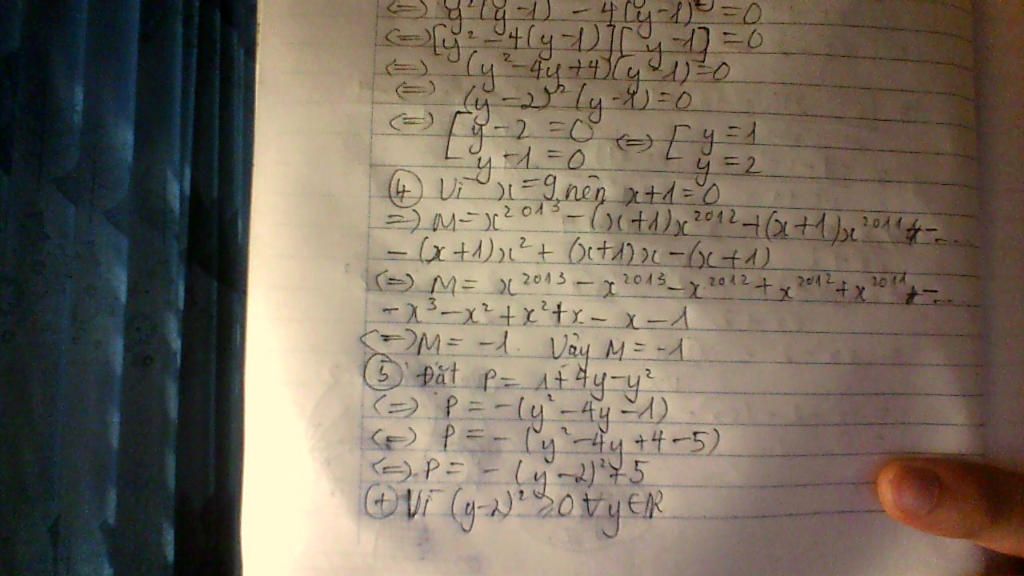 ⇔ y²(y-1) - 4(y-1)² = 0
⇔ [y² - 4(y-1)][y-1] = 0
⇔ (y² - 4y + 4)(y-1) = 0
⇔ (y-2)² (y-1) = 0
⇔ [ y-2 = 0 ⇔ [ y = 1
y-1 = 0 y = 2
④ Vì x = 9 nên x+1 = 0
⇒ M = x²⁰¹³ - (x+1)x²⁰¹² + (x+1)x²⁰¹¹ - ....
- (x+1)x² + (x+1)x - (x+1)
⇔ M = x²⁰¹³ - x²⁰¹³ - x²⁰¹² + x²⁰¹² + x²⁰¹¹ - ...
- x³ - x² + x² + x - x - 1
⇔ M = -1. Vậy M = -1
⑤ Đặt P = 1 + 4y - y²
⇔ P = -(y² - 4y - 1)
⇔ P = -(y² - 4y + 4 - 5)
⇔ P = -(y-2)² + 5
⊕ Vì (y-2)² ≥ 0 ∀ y ∈ R